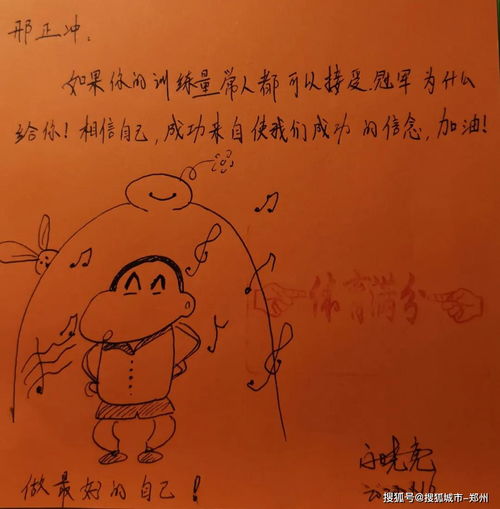 邢正冲:
如果你的训练量常人都可以接受,冠军为什么
给你!相信自己,成功来自使我们成功的信念,加油!
体育满分
做最好的自己!
搜狐号@搜狐城市-郑州